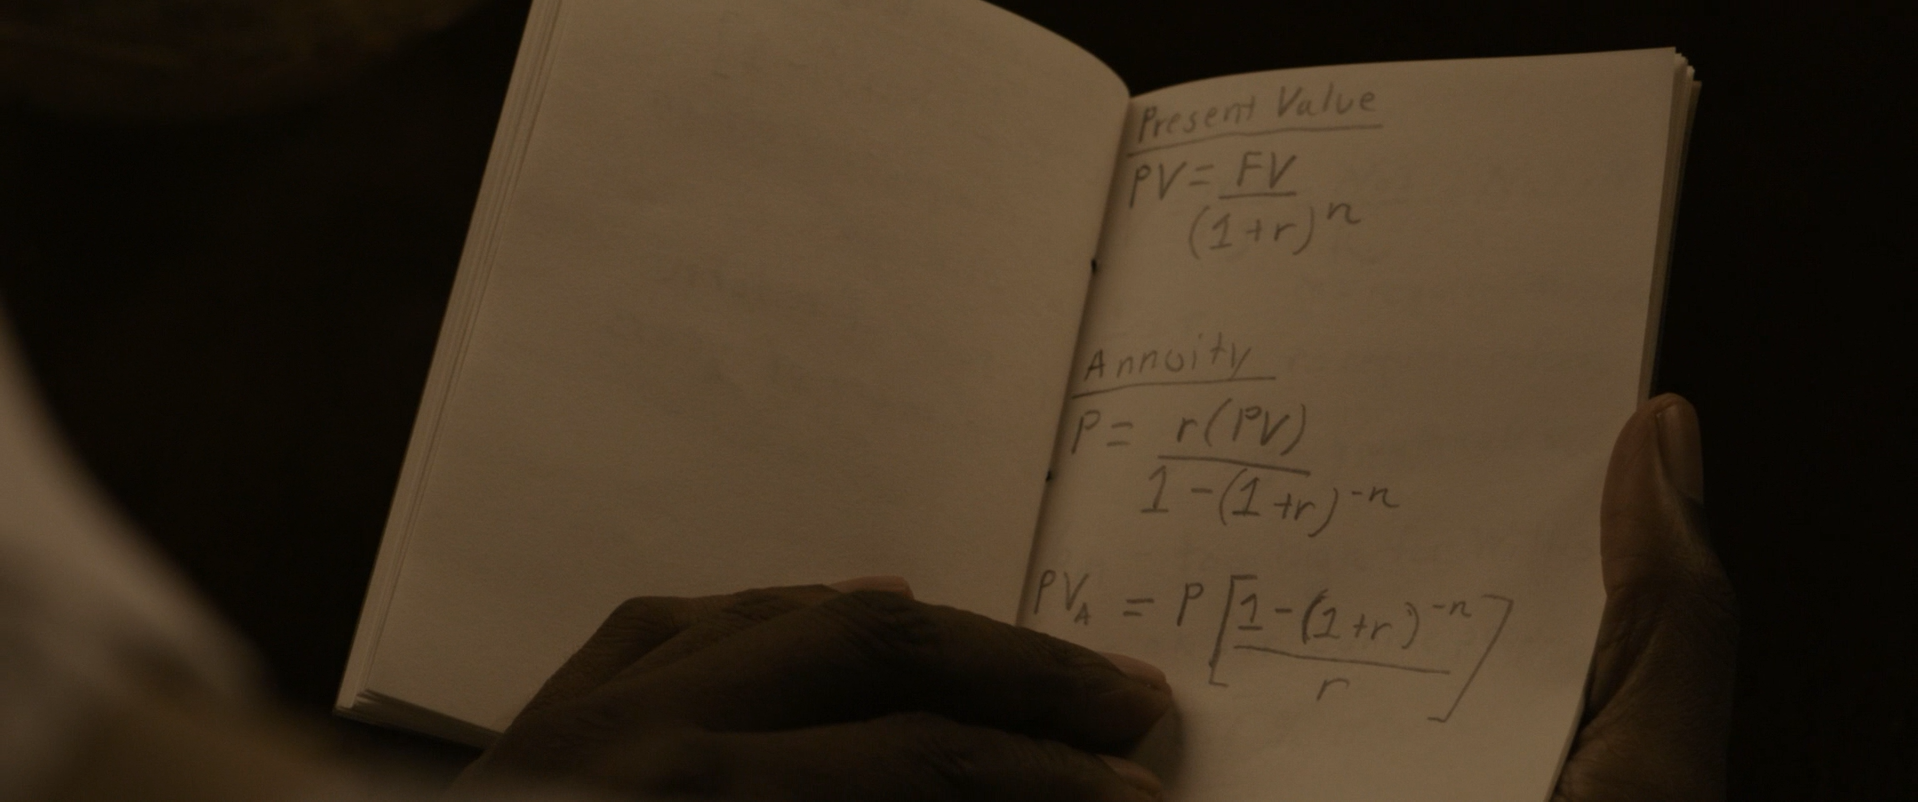 Present Value
PV = FV / (1+r)^n
Annuity
P = r(PV) / 1-(1+r)^-n
PV_A = P [1-(1+r)^-n / r]